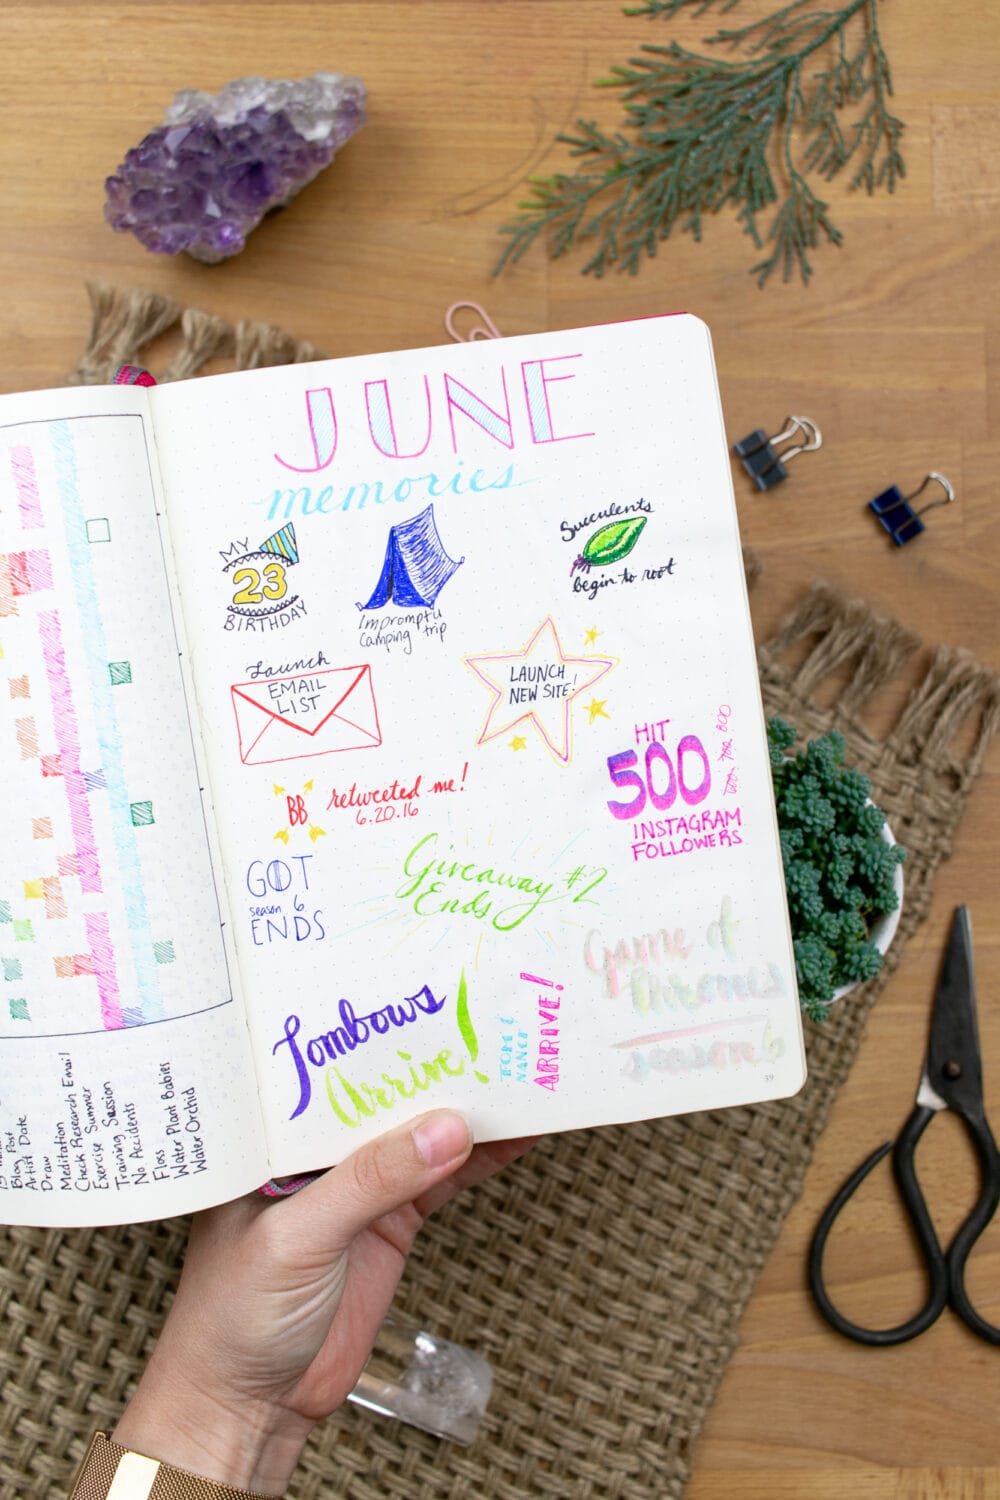 JUNE
memories
MY
23
BIRTHDAY
Impromptu
Camping trip
Succulents
begin to root
Launch
EMAIL
LIST
LAUNCH
NEW SITE!
HIT
500
INSTAGRAM
FOLLOWERS
BB
retweeted me!
6.20.16
GOT
season 6
ENDS
Giveaway #2
Ends
Tombows
Arrive!
ARRIVE!
Game of
Thrones
season 6
39
Blog Post
Artist Date
Draw
Meditation
Check Research Email
Exercise Summer
Training Session
No Accidents
Floss
Water Plant Babies
Water Orchid